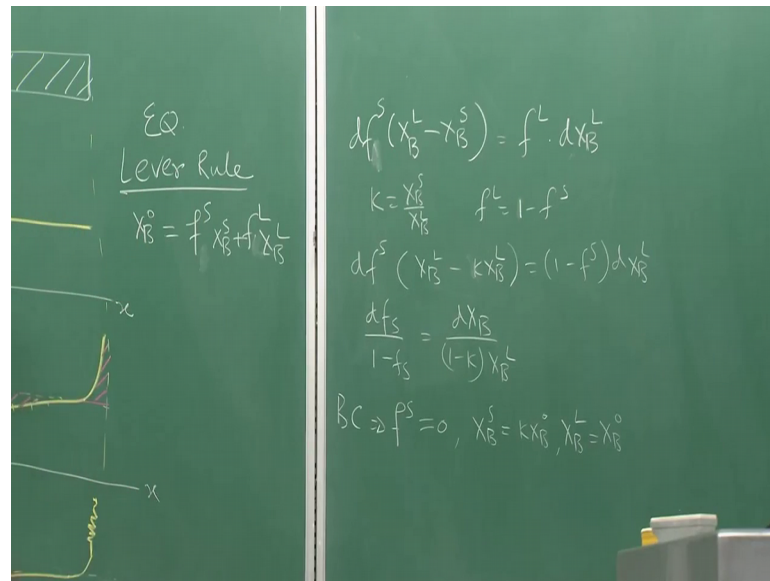 EQ.
Lever Rule
X_B^o = f^S X_B^S + f^L X_B^L
x
x
df^S (X_B^L - X_B^S) = f^L · dX_B^L
K = X_B^S / X_B^L f^L = 1 - f^S
df^S (X_B^L - KX_B^L) = (1 - f^S) dX_B^L
df_S / (1 - f_S) = dX_B / ((1 - K) X_B^L)
BC ⇒ f^S = 0, X_B^S = KX_B^o, X_B^L = X_B^o